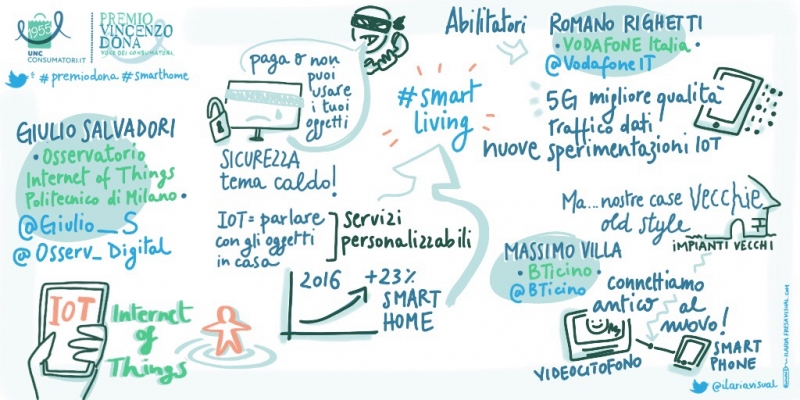 1955
UNC
CONSUMATORI.IT
PREMIO
VINCENZO
DONA
VOCE DEI CONSUMATORI
# premiodona # smarthome
GIULIO SALVADORI
• Osservatorio
Internet of Things
Politecnico di Milano •
@Giulio__S
@Osserv_Digital
IOT
Internet
of
Things
paga o non
puoi
usare
i tuoi
oggetti
SICUREZZA
tema caldo!
IOT = parlare
con gli oggetti
in casa
servizi
personalizzabili
2016
+23%
SMART
HOME
#smart
living
Abilitatori
ROMANO RIGHETTI
• VODAFONE Italia •
@VodafoneIT
5G migliore qualità
traffico dati
nuove sperimentazioni IOT
Ma...nostre case vecchie
old style
IMPIANTI VECCHI
MASSIMO VILLA
• BTicino •
@BTicino
connettiamo
antico al
nuovo!
VIDEOCITOFONO
SMART
PHONE
@ilariavisual